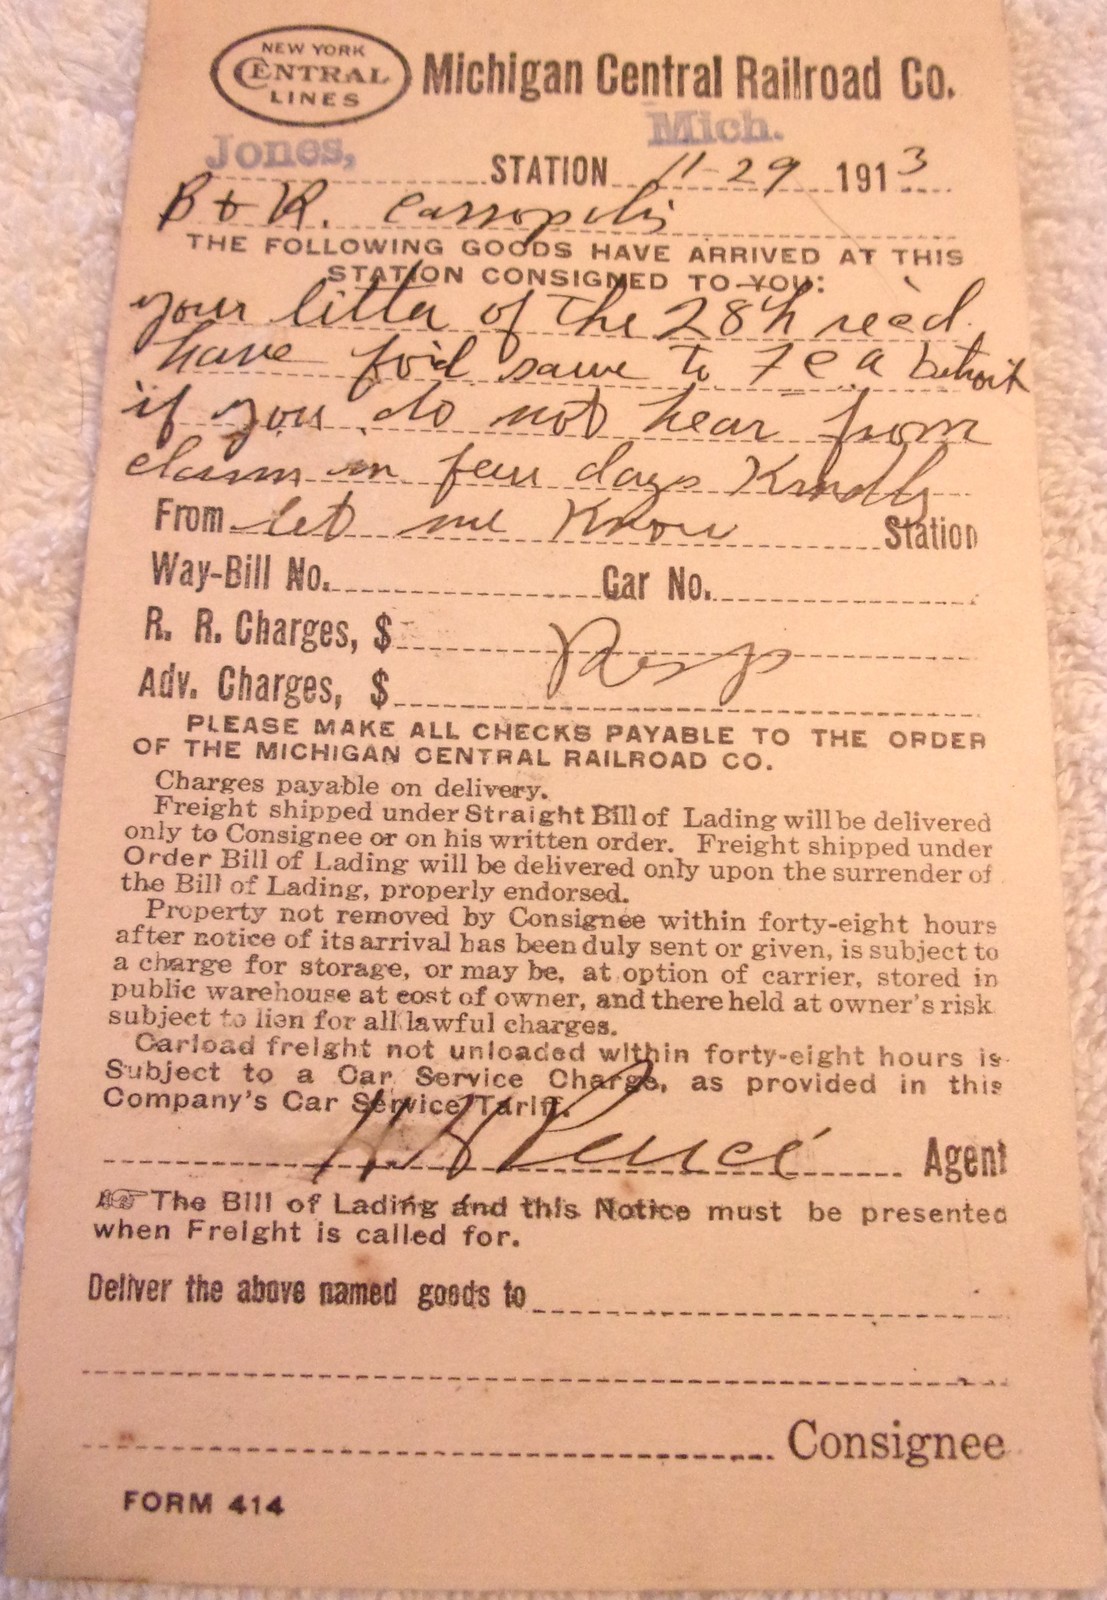 NEW YORK
CENTRAL
LINES
Michigan Central Railroad Co.
Jones, Mich.
STATION 11-29 1913
B & R. Cassopolis
THE FOLLOWING GOODS HAVE ARRIVED AT THIS
STATION CONSIGNED TO YOU:
your litter of the 28th rec'd
have fo'd same to F C A Detroit
if you do not hear from
claim in few days Kindly
From let me Know Station
Way-Bill No. Car No.
R. R. Charges, $
Resp
Adv. Charges, $
PLEASE MAKE ALL CHECKS PAYABLE TO THE ORDER
OF THE MICHIGAN CENTRAL RAILROAD CO.
Charges payable on delivery.
Freight shipped under Straight Bill of Lading will be delivered
only to Consignee or on his written order. Freight shipped under
Order Bill of Lading will be delivered only upon the surrender of
the Bill of Lading, properly endorsed.
Property not removed by Consignee within forty-eight hours
after notice of its arrival has been duly sent or given, is subject to
a charge for storage, or may be, at option of carrier, stored in
public warehouse at cost of owner, and there held at owner's risk
subject to lien for all lawful charges.
Carload freight not unloaded within forty-eight hours is
Subject to a Car Service Charge, as provided in this
Company's Car Service Tariff.
H H Pence Agent
☞ The Bill of Lading and this Notice must be presented
when Freight is called for.
Deliver the above named goods to
Consignee
FORM 414